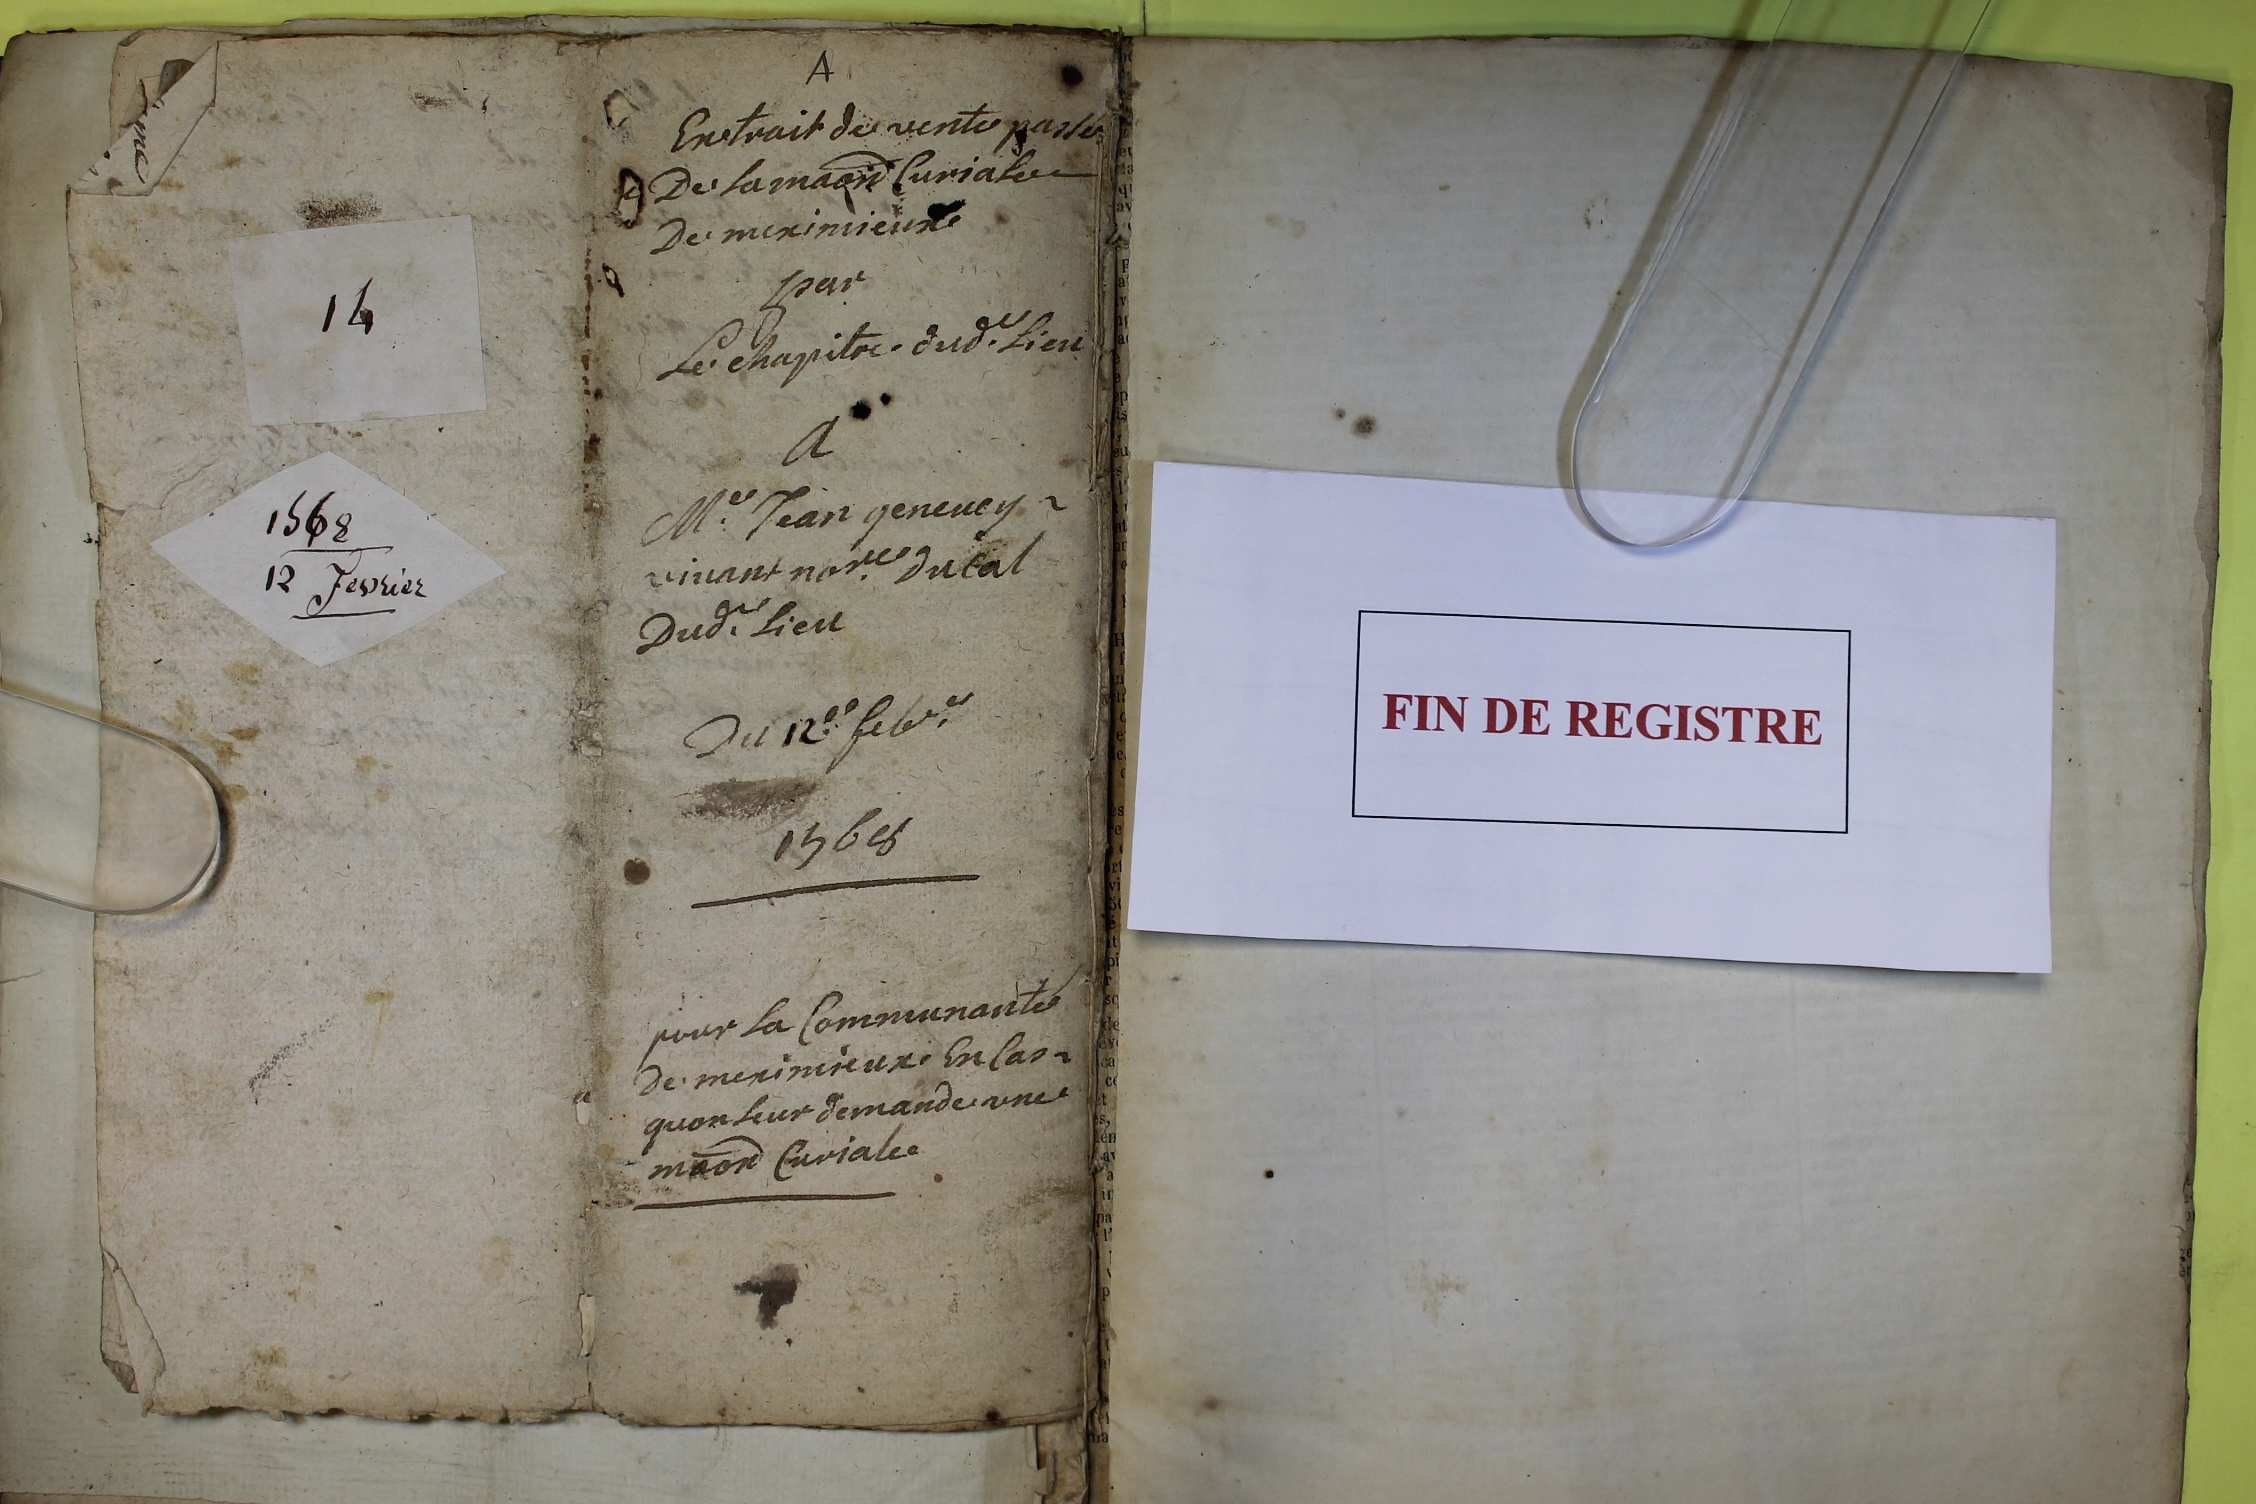 14
1568
12 Fevrier
A
Extrait de vente passée
De la maōn Curiale
De meximieux
par
Le chapitre dud.t Lieu
A
M.e Jean geneuey
viuant no.re Ducal
Dud.t Lieu
Du 12.e feb.r
1568
pour la Communauté
de meximieux En Cas
quon leur demande une
maōn Curiale
FIN DE REGISTRE